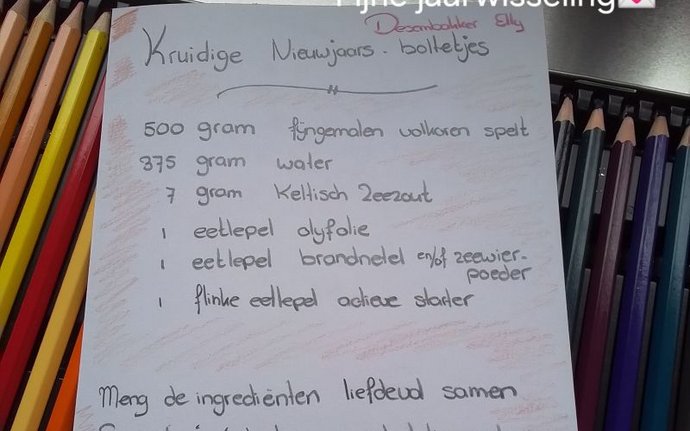 Fijne jaarwisseling
Desembakker Elly
Kruidige Nieuwjaars-bolletjes
500 gram fijngemalen volkoren spelt
375 gram water
7 gram Keltisch Zeezout
1 eetlepel olyfolie
1 eetlepel brandnetel en/of zeewier-
poeder
1 flinke eetlepel actieve starter
Meng de ingrediënten liefdevol samen